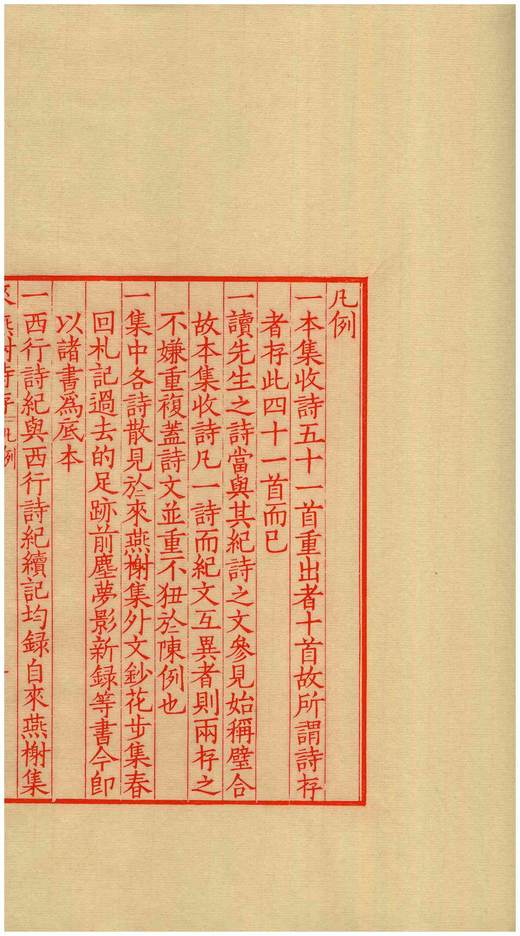 凡例
一本集收詩五十一首重出者十首故所謂詩存
者存此四十一首而已
一讀先生之詩當與其紀詩之文參見始稱璧合
故本集收詩凡一詩而紀文互異者則兩存之
不嫌重複蓋詩文並重不狃於陳例也
一集中各詩散見於來燕榭集外文鈔花步集春
回札記過去的足跡前塵夢影新録等書今即
以諸書爲底本
一西行詩紀與西行詩紀續記均録自來燕榭集
燕榭詩存 凡例